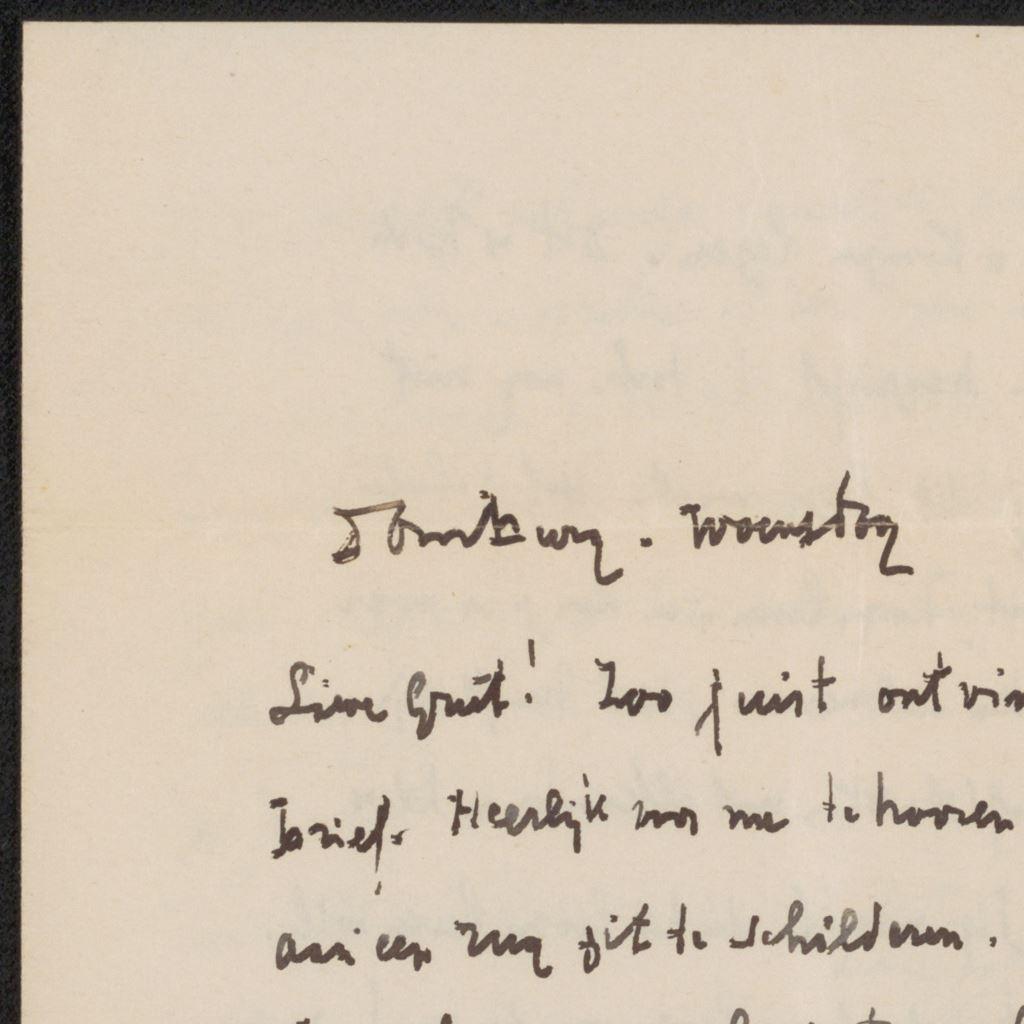 Domburg. Woensdag
Lieve Gruit! Zoo juist ontvin
brief. Heerlijk voor me te hooren
aan een zug zit te schilderen.